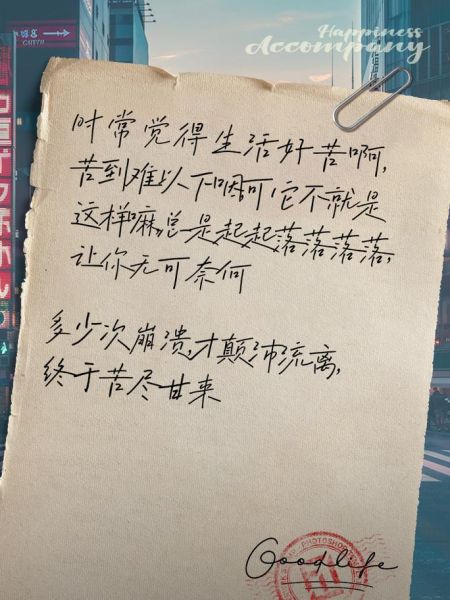 Happiness
Accompany
时常觉得生活好苦啊,
苦到难以下咽可它不就是
这样嘛,总是起起落落落落,
让你无可奈何
多少次崩溃,才颠沛流离,
终于苦尽甘来
Good life